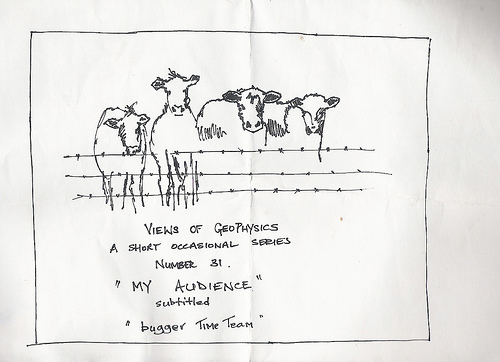 VIEWS OF GEOPHYSICS
A SHORT OCCASIONAL SERIES
NUMBER 31.
"MY AUDIENCE"
subtitled
"bugger Time Team"